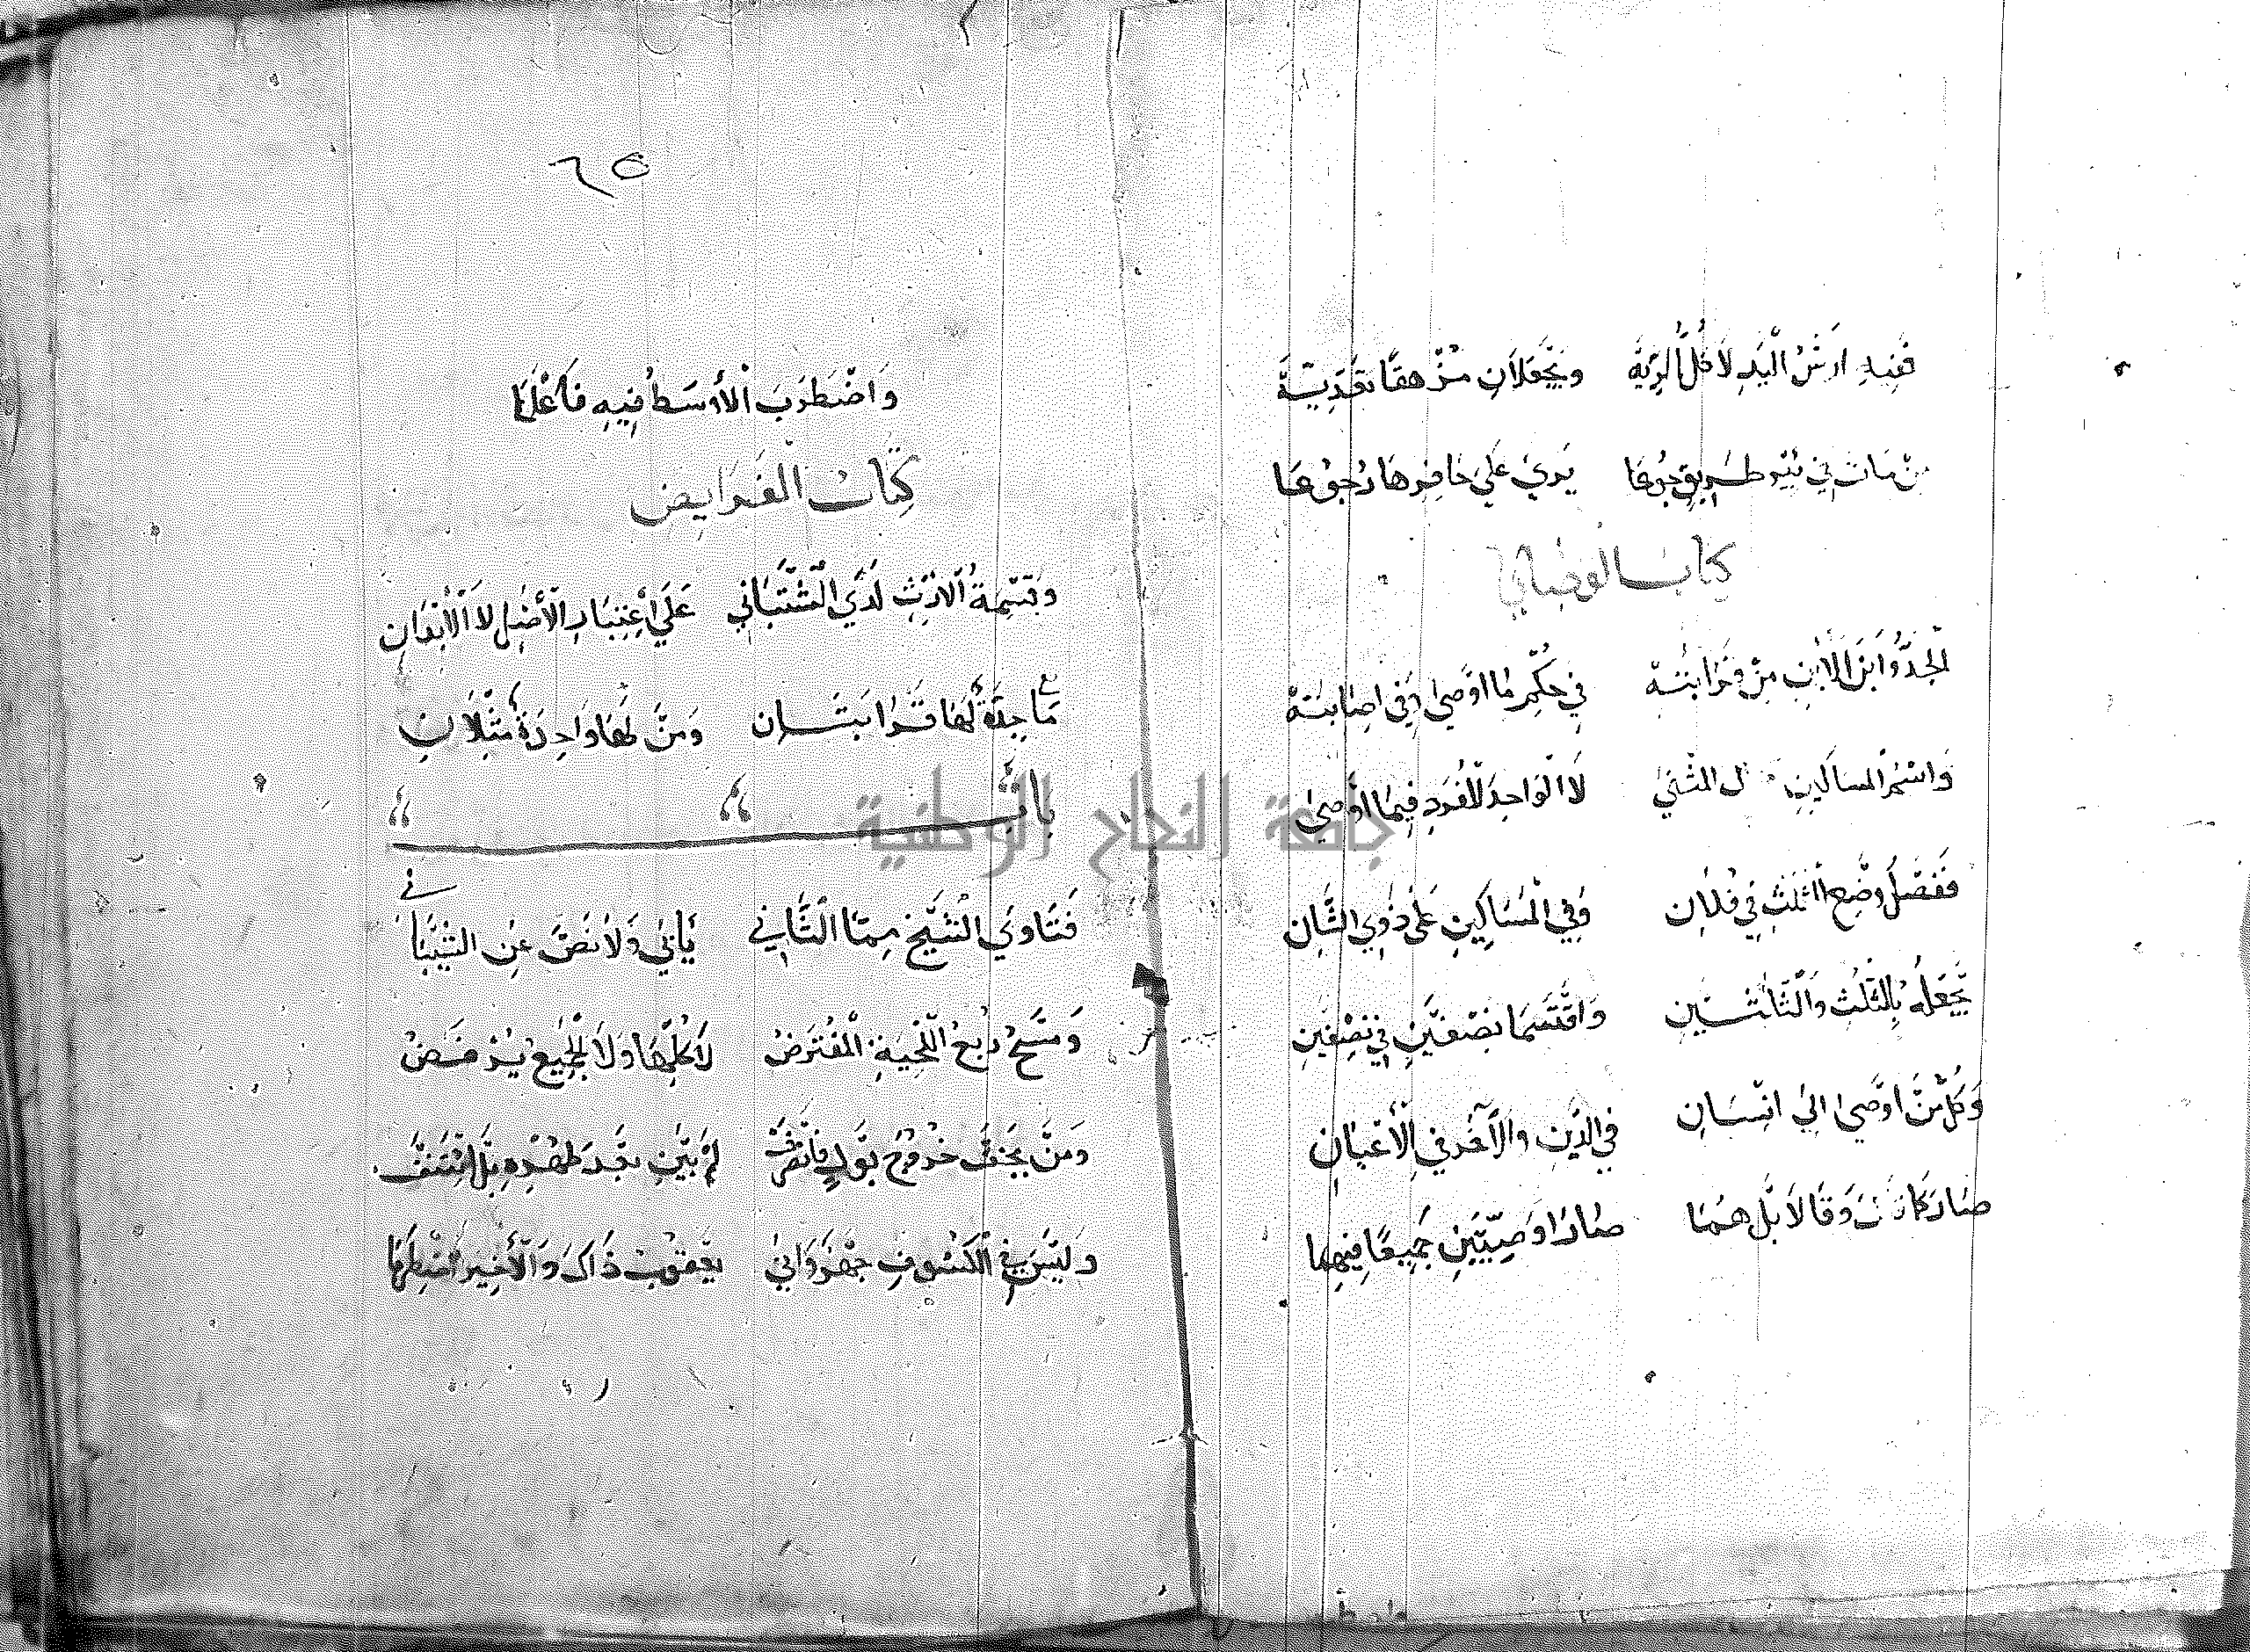 فَفِيهِ ارْشُ الْيَدِ لَا كُلُّ الدِّيَة وَيَجْعَلَانِ مُزْهِقًا تَعَدِّيَة
مَنْ مَاتَ فِي بِئْرِ طَرِيقٍ جُوعَا يَرَى عَلَى حَافِرِهَا رُجُوعَا
كتاب الوصايا
الْجَدُّ وَابْنُ الْاِبْنِ مِنْ قَرَابَتِهْ فِي حُكْمِ مَا اَوْصَى وَفِي اِصَابَتِهْ
وَاسْمُ الْمَسَاكِينِ الْمُثَنَّى لَا الْوَاحِدِ الْمُفْرَدِ فِيمَا اَوْصَى
فَفَضْلُ وَضْعِ الثُّلْثِ فِي فُلَانِ وَفِي الْمَسَاكِينِ عَلَى ذَوِي الشَّانِ
يَجْعَلُهُ بِالثُّلْثِ وَالثُّلْثَيْنِ وَاقْتَسَمَا نِصْفَيْنِ فِي نِصْفَيْنِ
وَكُلُّ مَنْ اَوْصَى اِلَى اِنْسَانِ فِي الدَّيْنِ وَالْآخَرِ فِي الْاَعْيَانِ
صَارَ كَانَتْ وَقَالَا بَلْ هُمَا صَارَا وَصِيَّيْنِ جَمِيعًا فِيهِمَا
٦٥
وَاضْطَرَبَ الْاَوْسَطُ فِيهِ فَاعْلَمَا
كتاب الفرايض
وَقِسْمَةُ الْاِرْثِ لَدَى الشَّيْبَانِي عَلَى اعْتِبَارِ الْاَصْلِ لَا الْاَبْدَانِ
مَا جَدَّةٌ لَهَا قَرَابَتَانِ وَمَنْ لَهَا وَاحِدَةٌ مِثْلَانِ
باب
فَتَاوَى الشَّيْخِ مِمَّا الثَّانِي يَاتِي وَلَا نَصَّ عَنِ الشَّيْبَانِي
وَمَسْحُ رُبْعِ اللِّحْيَةِ الْمُفْتَرَضُ لَا كُلِّهَا وَلَا الْجَمِيعُ يُرْفَضُ
وَمَنْ يَخَفْ خُرُوجَ بَوْلٍ فَانْصَرَفْ لَمْ يَبْنِ بَعْدَ طُهْرِهِ بَلِ ائْتَنَفْ
وَلَيْسَ فِي الْكُسُوفِ جَهْرٌ وَاَبَى يَعْقُوبُ ذَاكَ وَالْاَخِيرُ اضْطَرَبَا
جامعة النجاح الوطنية